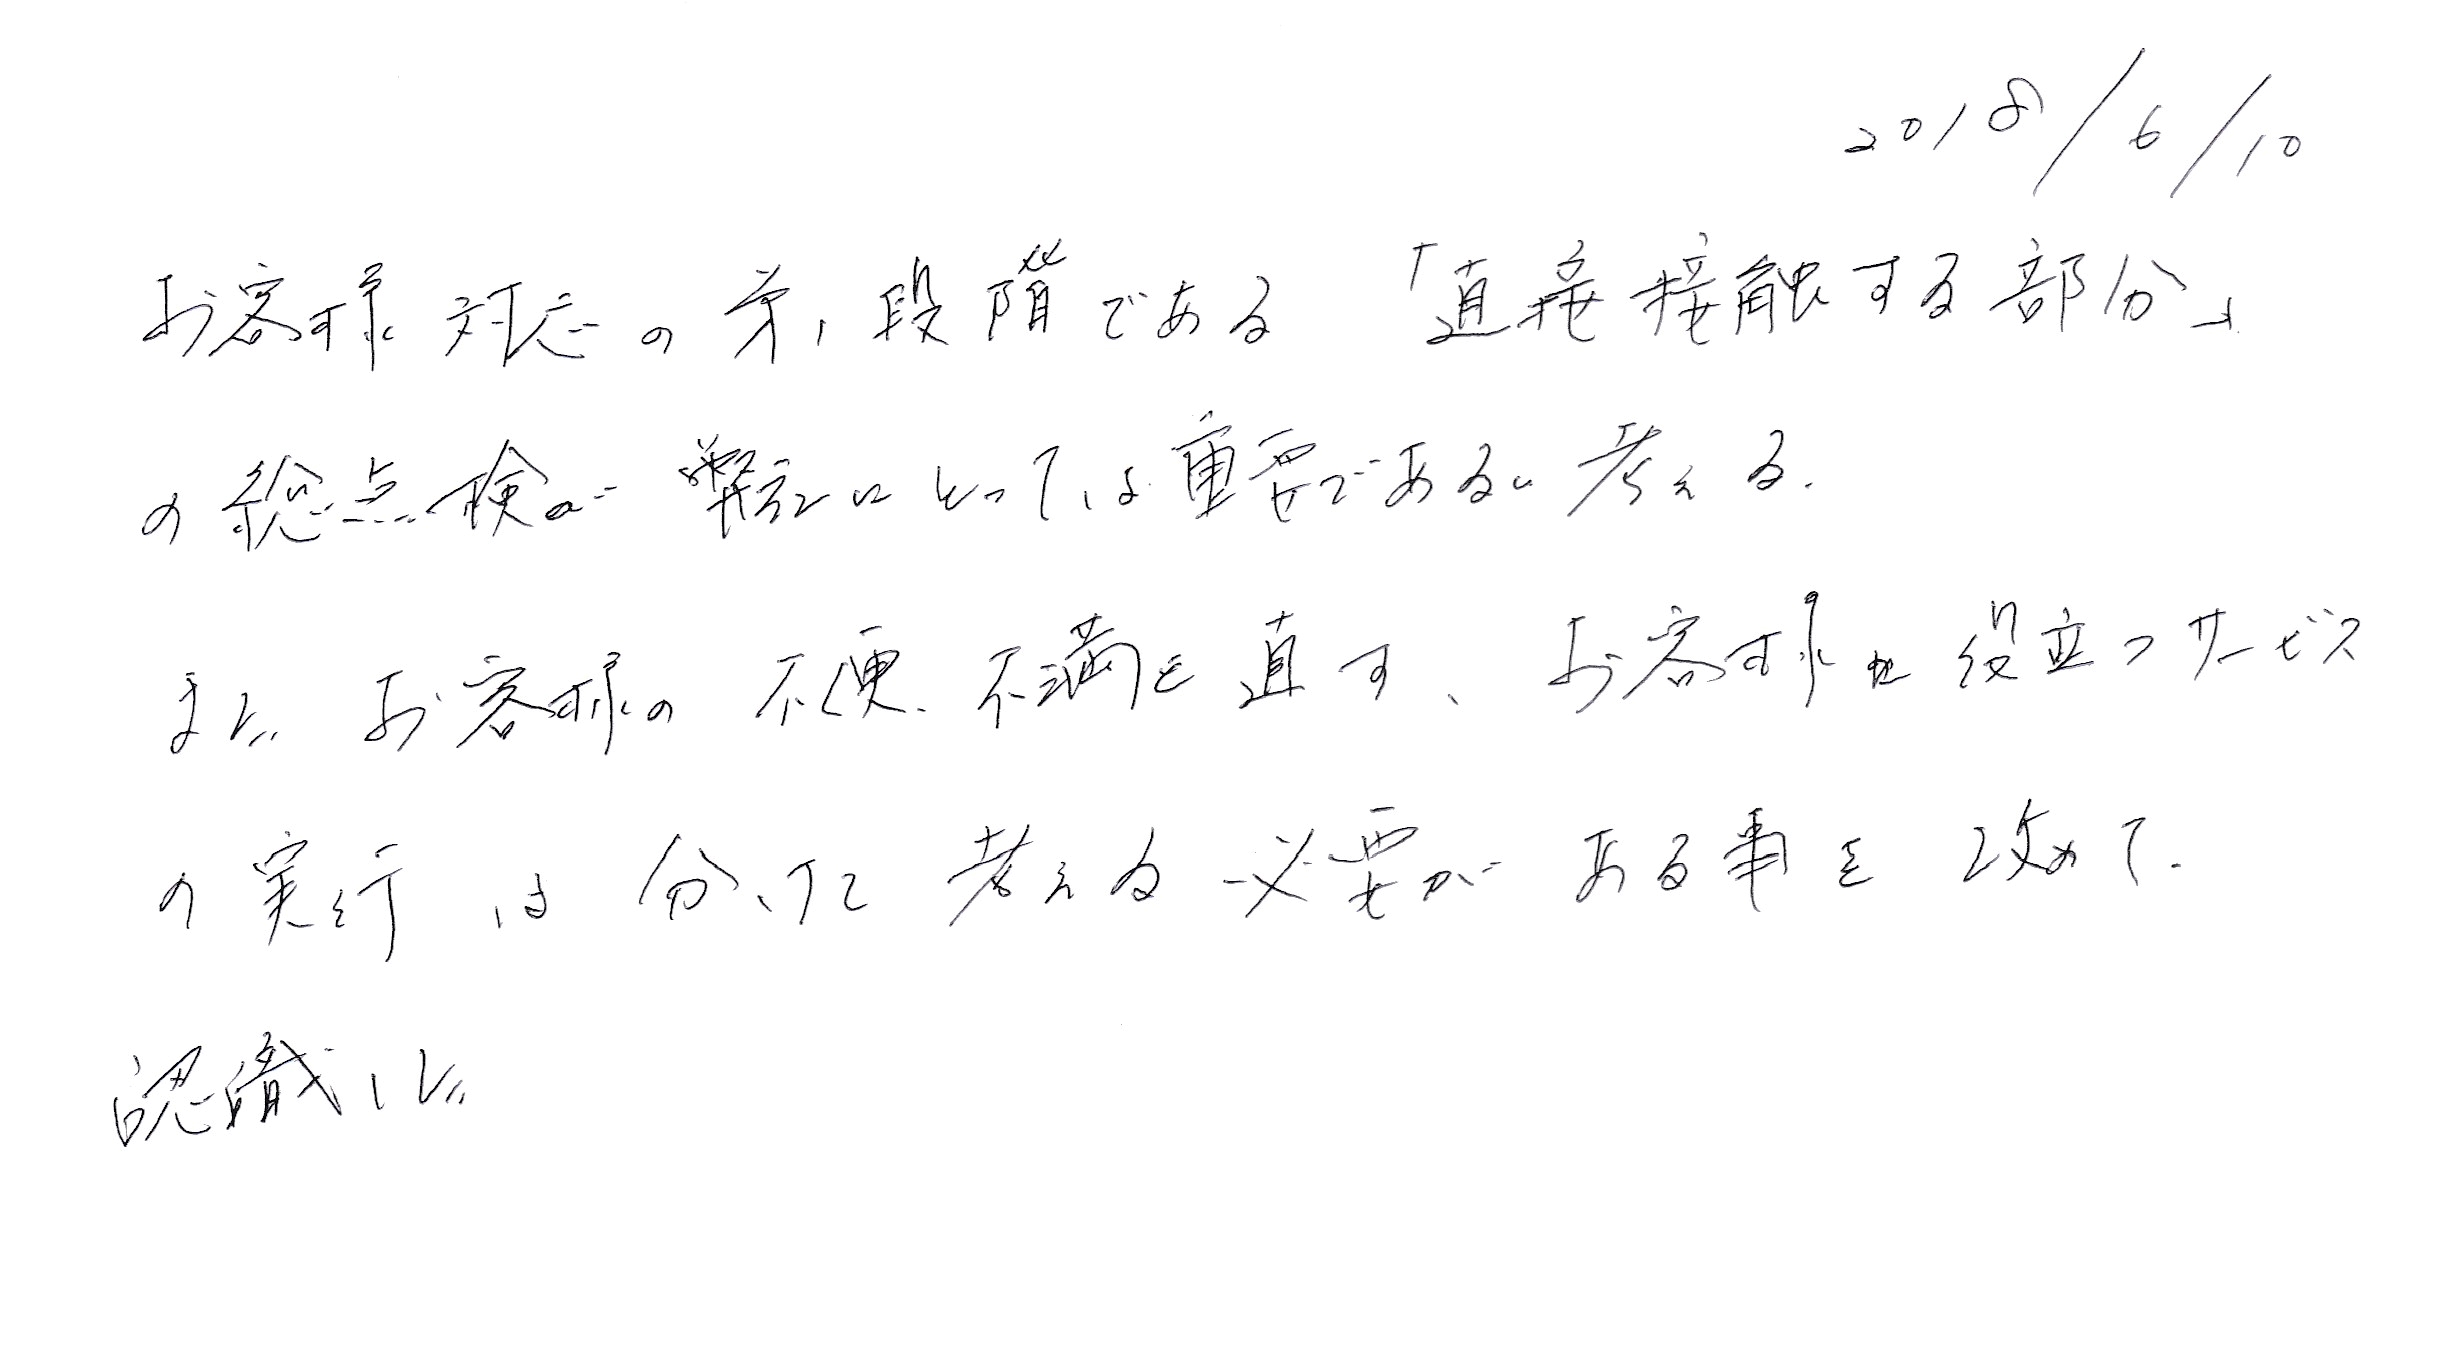 2018/6/10
お客様対応の第1段階である「直接接触する部分」
の総点検が弊社にとっては重要であると考える.
また お客様の不便、不満を直す、お客様に役立つサービス
の実行は分けて考える必要がある事を改めて.
認識した